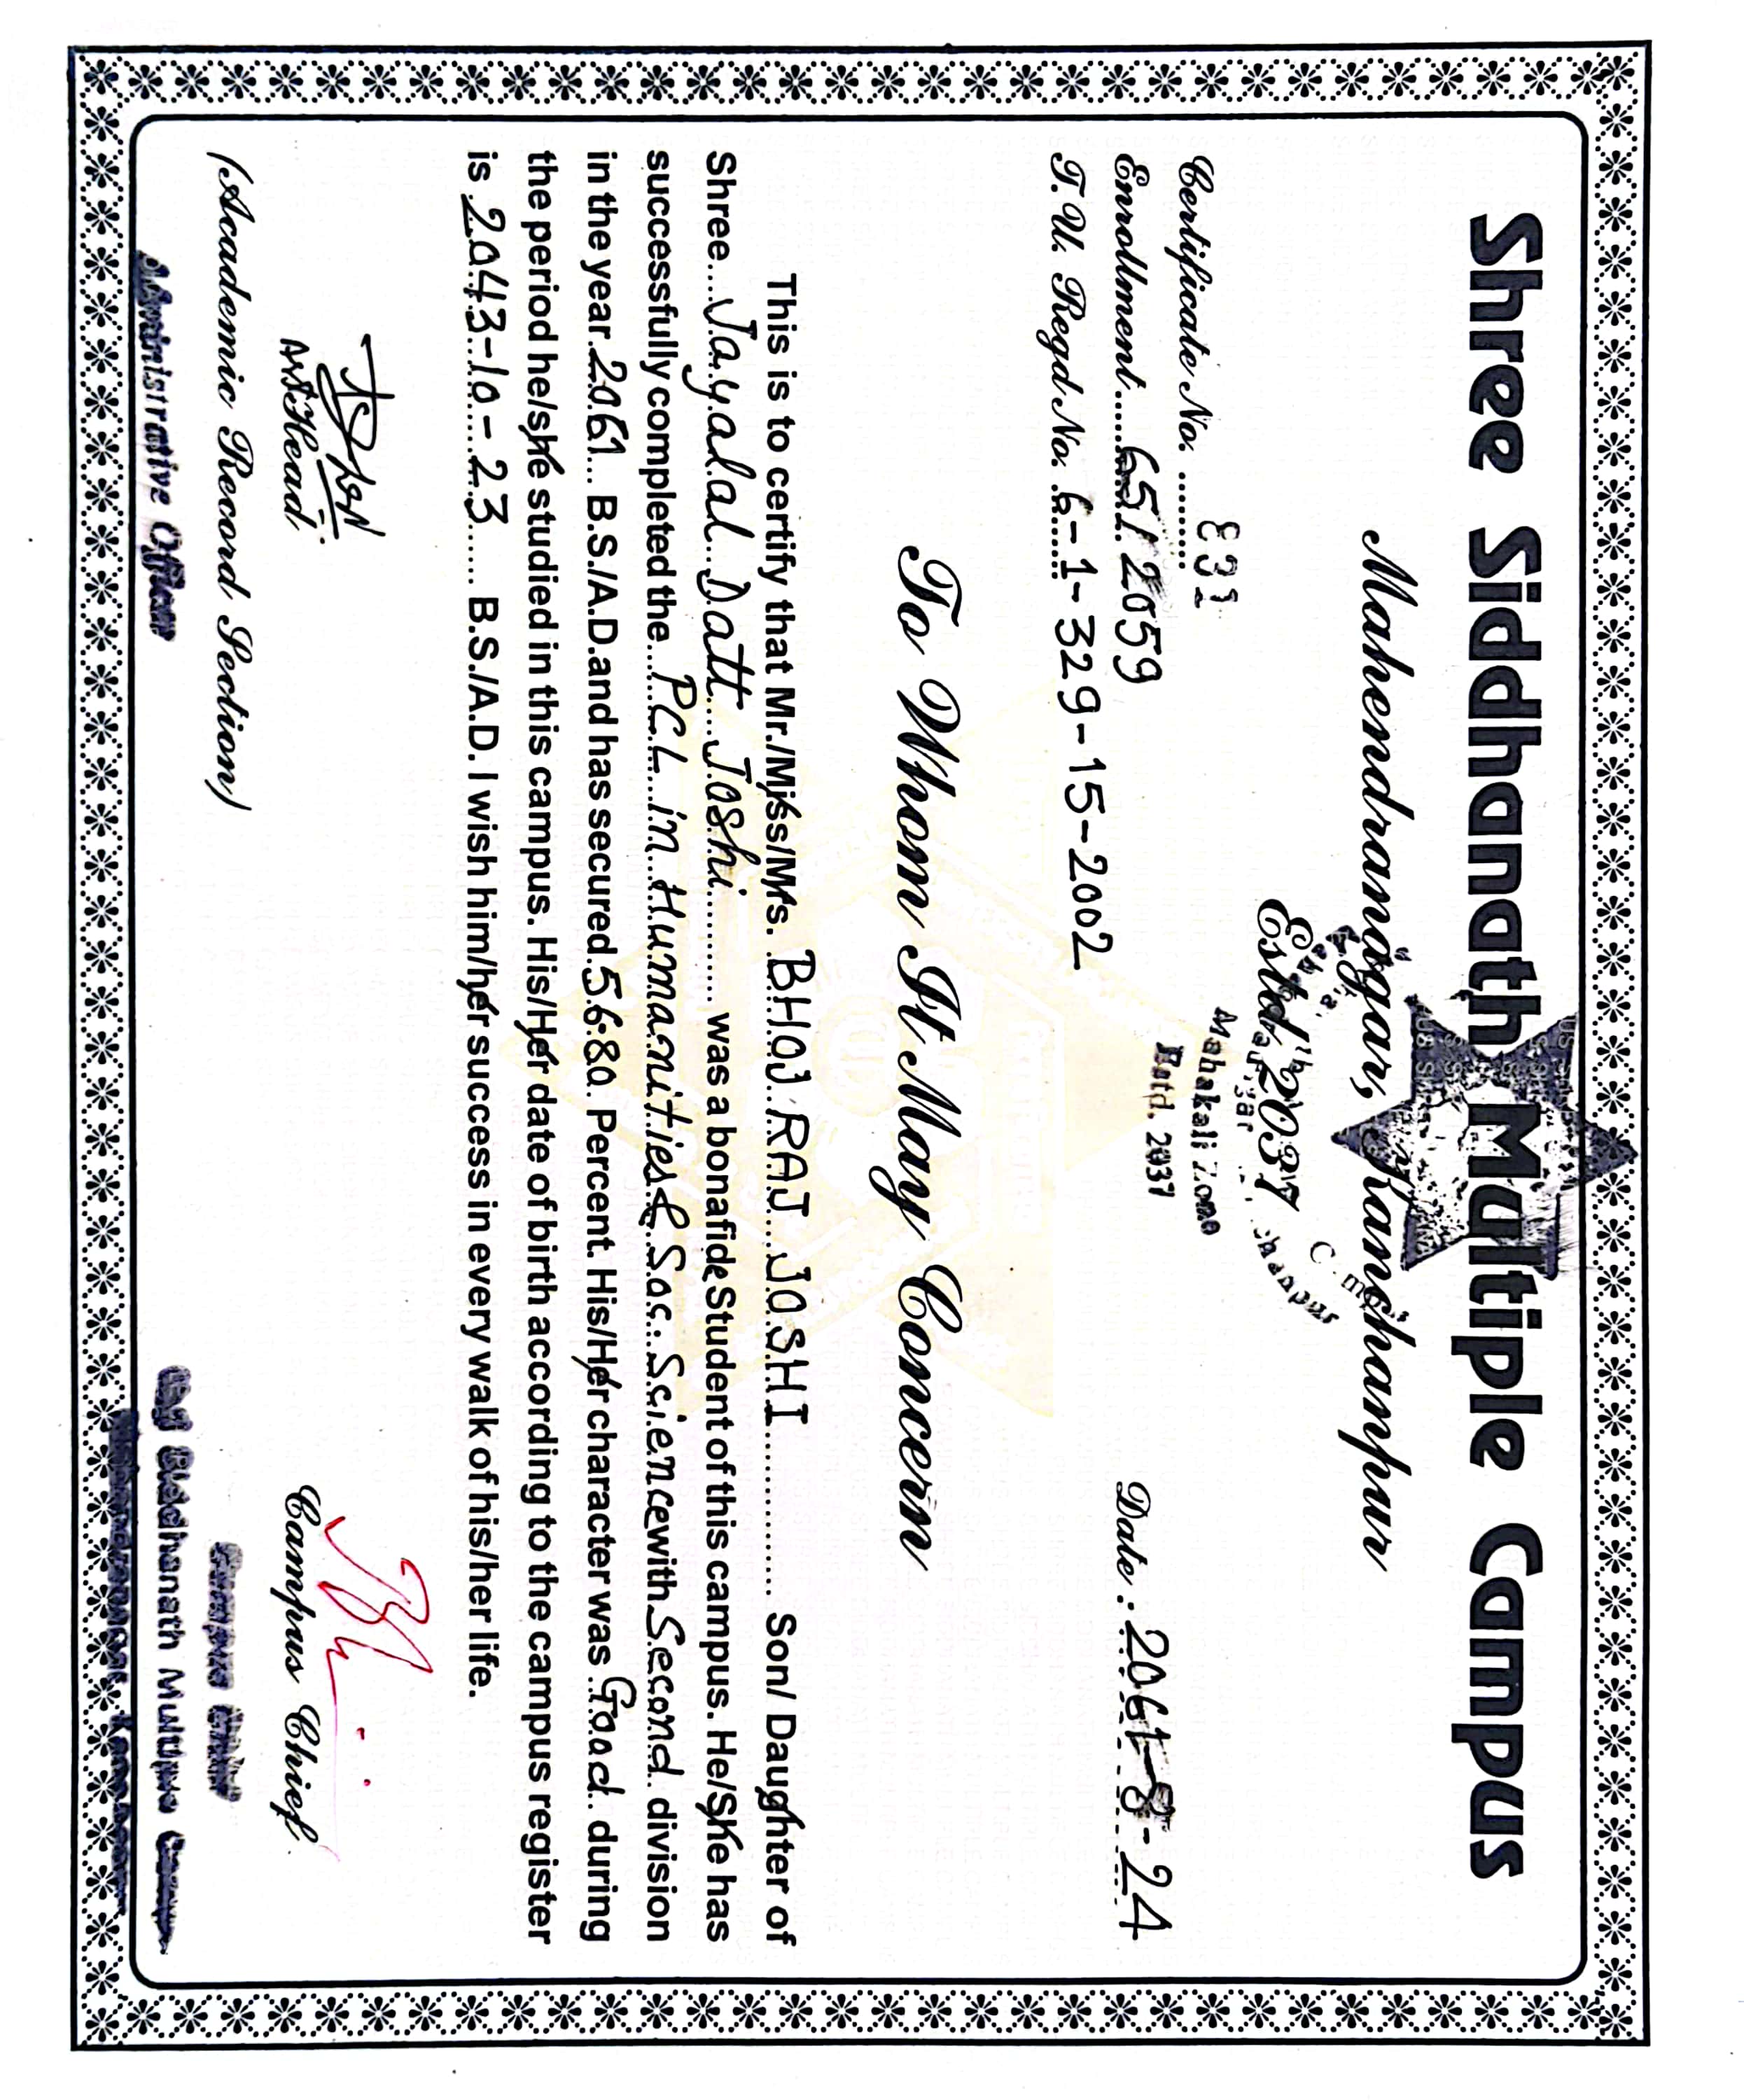 Shree Siddhanath Multiple Campus
Mahendranagar, Kanchanpur
Estd. 2037
Mahakali Zone
Estd. 2037
Certificate No. ..........
Enrollment.... 65/2059
Date : 2061-8-24
T. U. Regd No. 6-1-329-15-2002
To Whom It May Concern
This is to certify that Mr./Miss/Mrs. BHOJ RAJ JOSHI Son/ Daughter of
Shree... Jayalal Datt Joshi was a bonafide Student of this campus. He/She has
successfully completed the... PCL in Humanities & Soc. Science with Second division
in the year. 2061 ... B.S./A.D. and has secured 56.80. Percent. His/Her character was Good during
the period he/she studied in this campus. His/Her date of birth according to the campus register
is 2043-10-23 ..... B.S./A.D. I wish him/her success in every walk of his/her life.
Head
Campus Chief
(Academic Record Section)
Campus Chief
Administrative Officer
Siddhanath Multiple Campus
Mahendranagar,